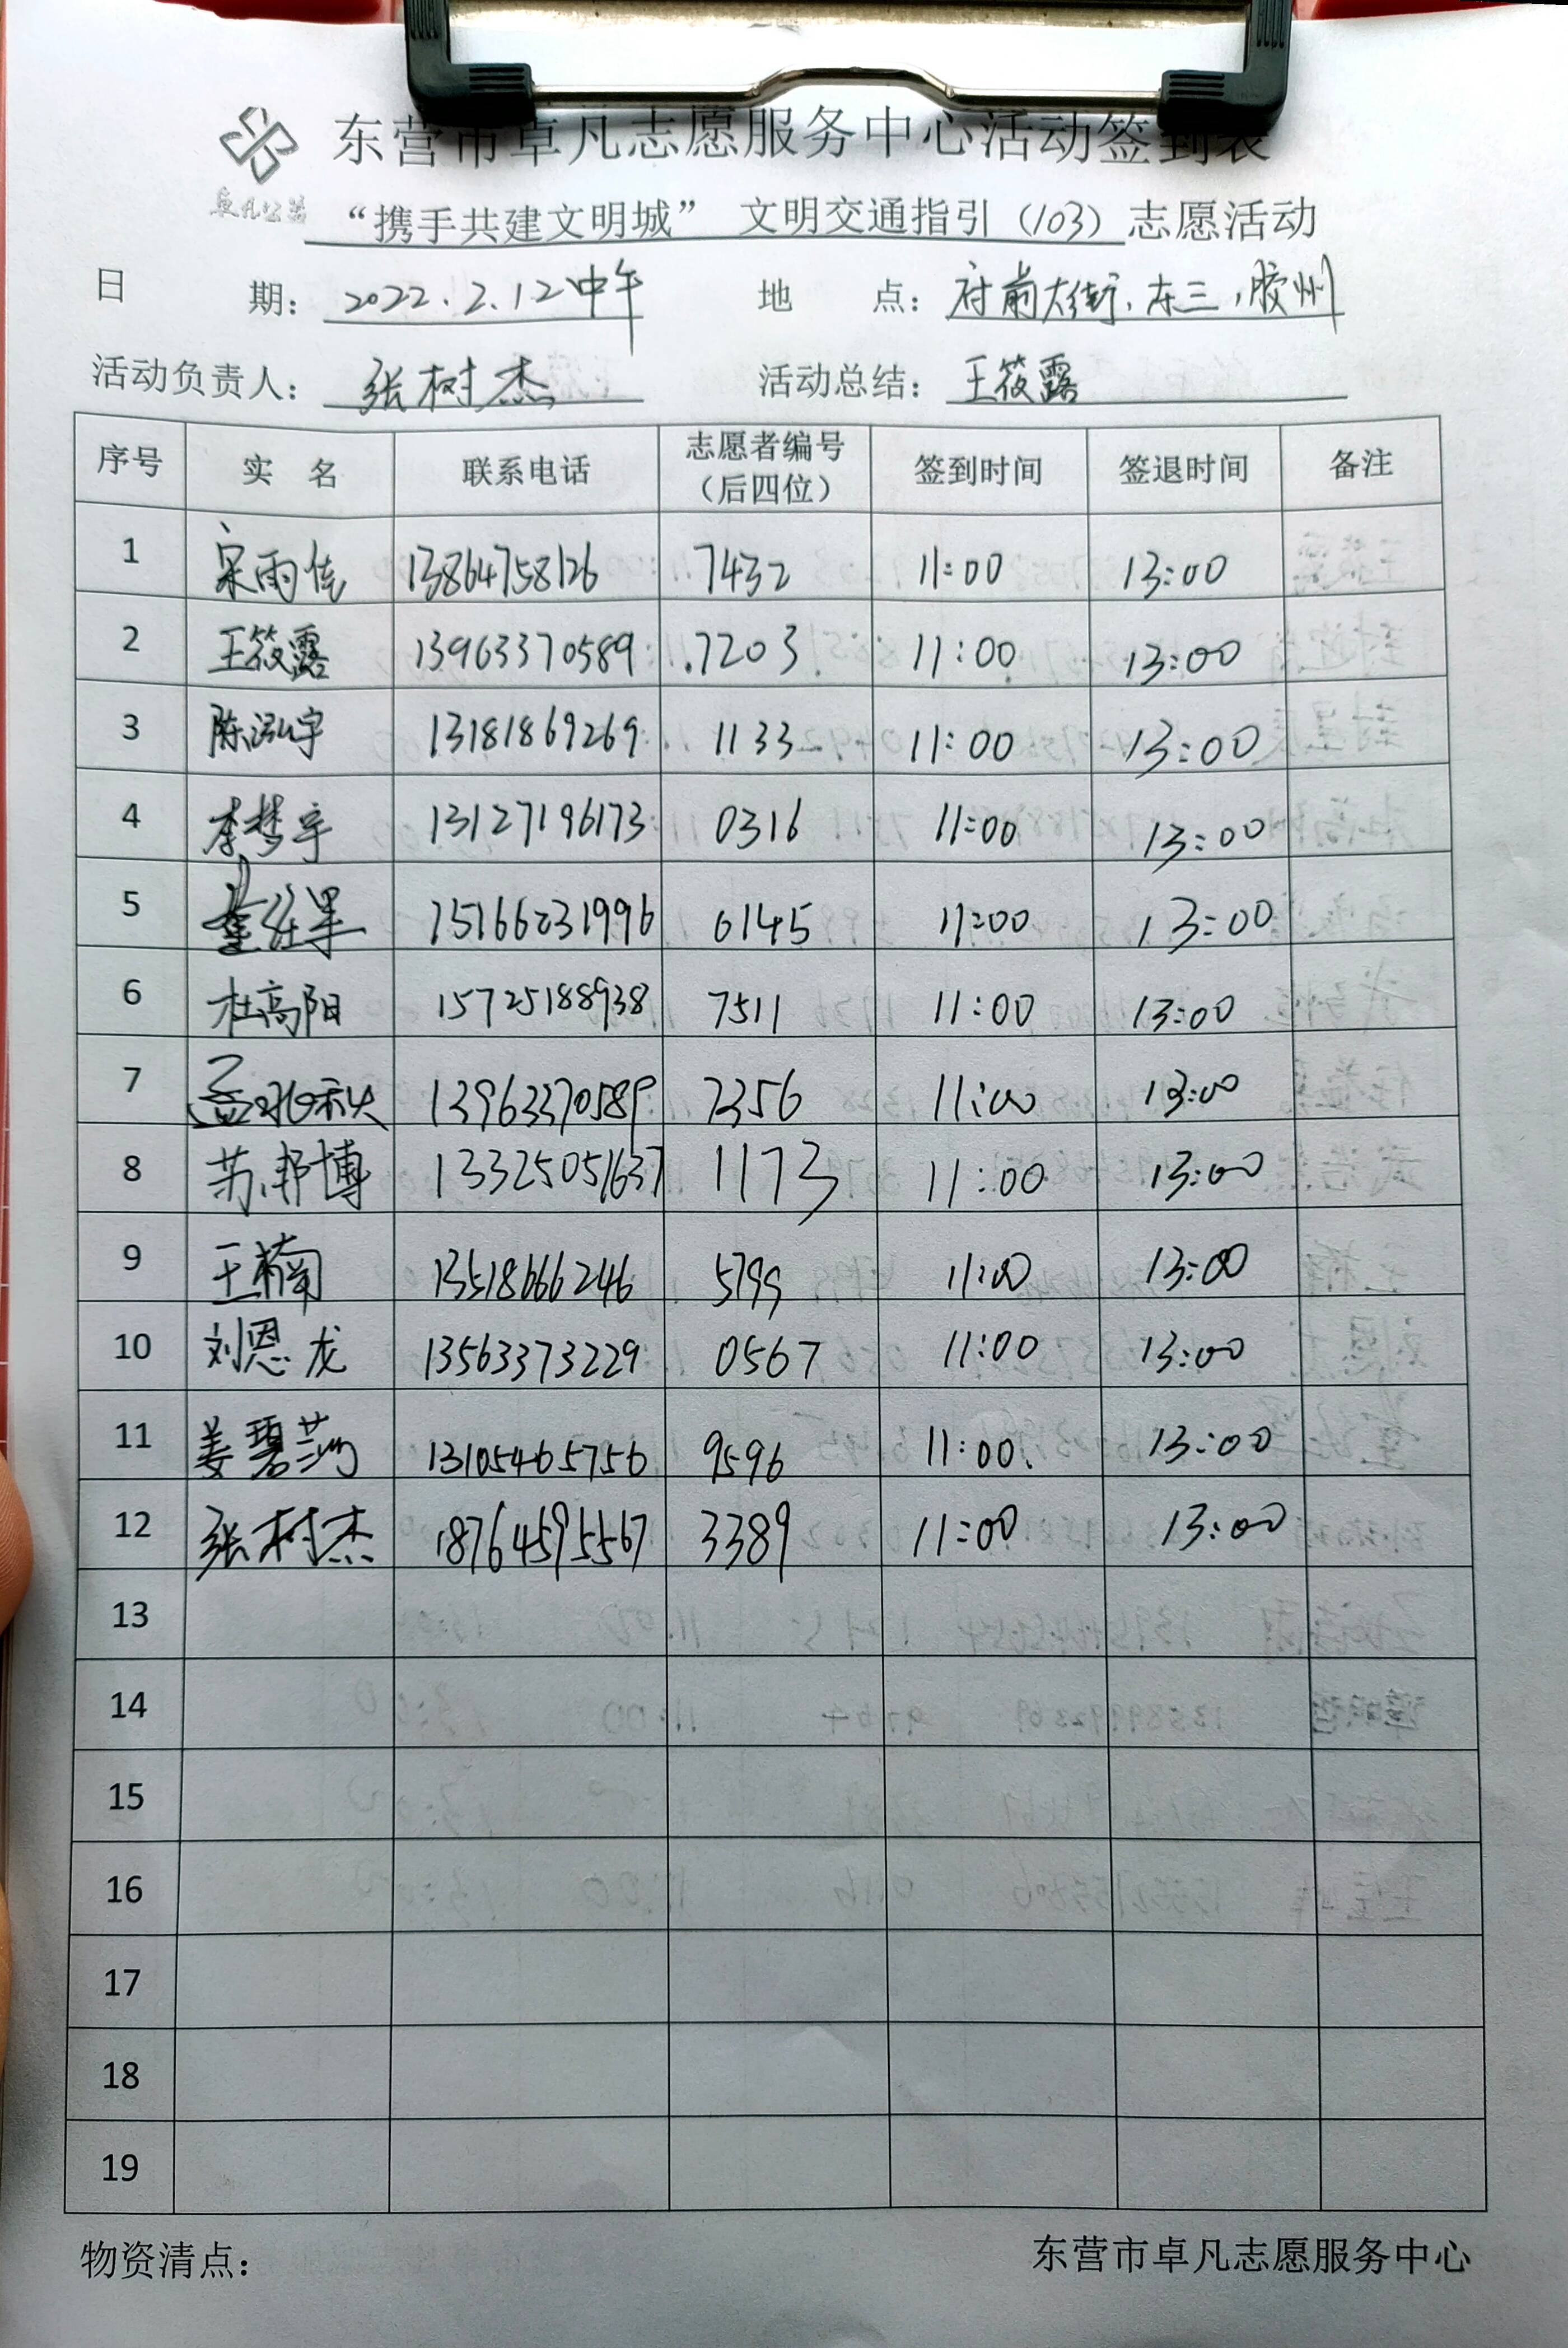 东营市卓凡志愿服务中心活动签到表
卓凡公益
“携手共建文明城” 文明交通指引（103）志愿活动
日 期：2022.2.12中午 地 点：府前大街、东三，胶州
活动负责人：张树杰 活动总结：王筱露
序号 实 名 联系电话 志愿者编号（后四位） 签到时间 签退时间 备注
1 宋雨佳 13864758126 7432 11:00 13:00
2 王筱露 13963370589 7203 11:00 13:00
3 陈泓宇 13181869269 1133 11:00 13:00
4 李梦宇 13127196173 0316 11:00 13:00
5 15166231996 6145 11:00 13:00
6 杜高阳 15725188938 7511 11:00 13:00
7 13963370589 7356 11:00 13:00
8 苏邦博 13325051637 1173 11:00 13:00
9 王楠 13518666246 5799 11:00 13:00
10 刘恩龙 13563373229 0567 11:00 13:00
11 姜碧 13105465756 9596 11:00 13:00
12 张树杰 18764595567 3389 11:00 13:00
13
14
15
16
17
18
19
物资清点： 东营市卓凡志愿服务中心